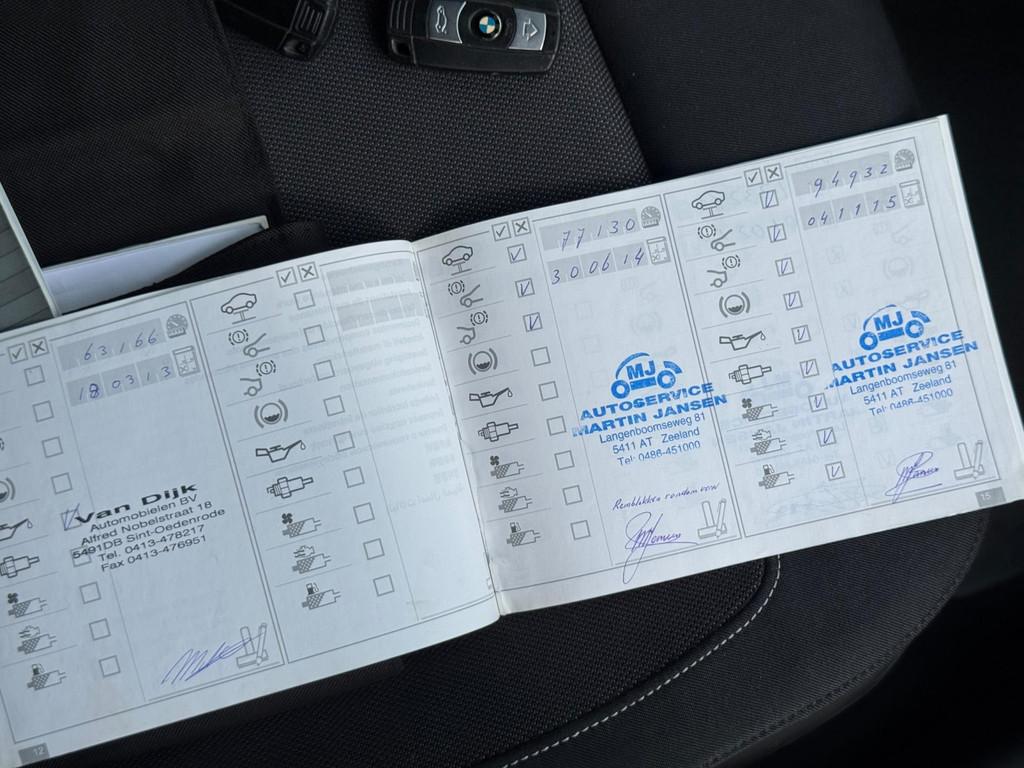 63166
180313
Van Dijk
Automobielen BV
Alfred Nobelstraat 18
5491DB Sint-Oedenrode
Tel. 0413-478217
Fax 0413-476951
12
77130
300614
MJ
AUTOSERVICE
MARTIN JANSEN
Langenboomseweg 81
5411 AT Zeeland
Tel: 0486-451000
Remblokken rondom new
94932
041115
MJ
AUTOSERVICE
MARTIN JANSEN
Langenboomseweg 81
5411 AT Zeeland
Tel: 0486-451000
15